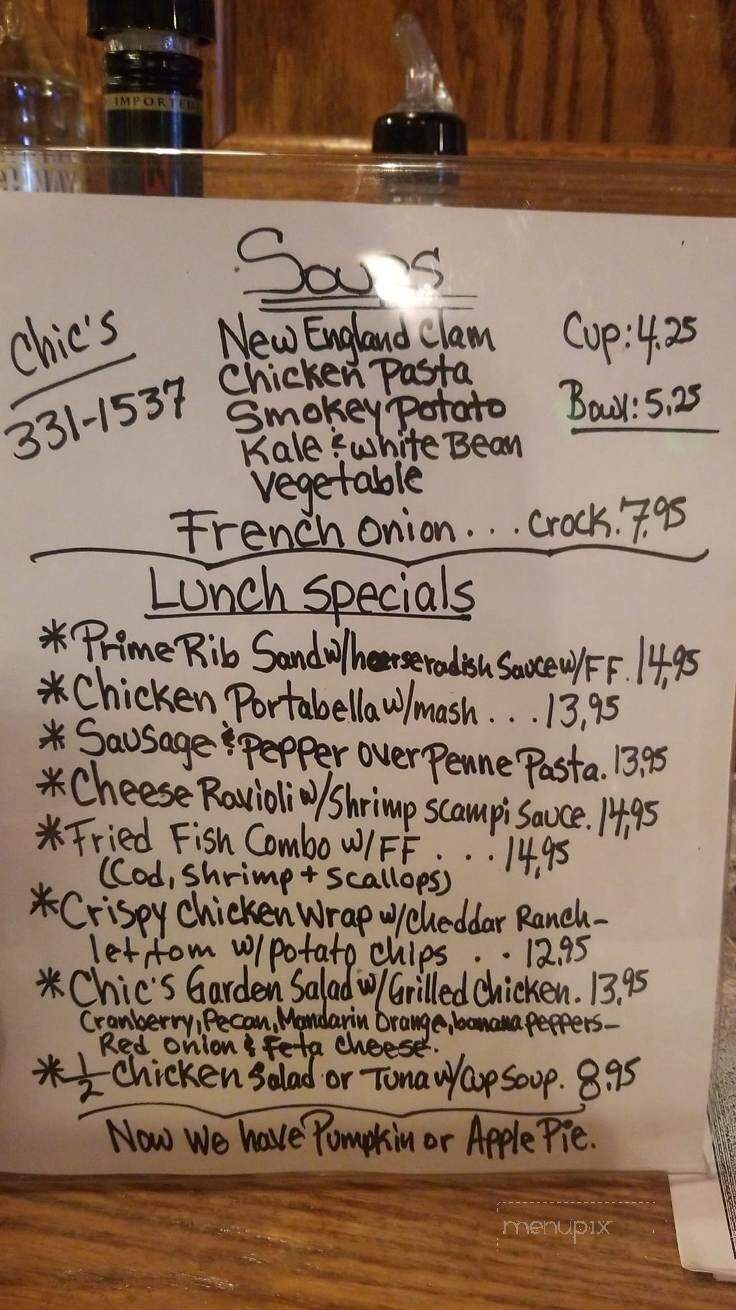 IMPORTED
Soups
Chic's
331-1537
New England Clam
Chicken Pasta
Smokey Potato
Kale & White Bean
Vegetable
Cup: 4.25
Bowl: 5.25
French Onion... Crock. 7.95
Lunch Specials
* Prime Rib Sand w/ horseradish Sauce w/ FF. 14,95
* Chicken Portabella w/ mash... 13,95
* Sausage & Pepper over Penne Pasta. 13,95
* Cheese Ravioli w/ Shrimp scampi Sauce. 14,95
* Fried Fish Combo w/ FF.... 14,95
(Cod, Shrimp + Scallops)
* Crispy Chicken Wrap w/ Cheddar Ranch-
let, tom w/ potato chips.. 12.95
* Chic's Garden Salad w/ Grilled Chicken. 13,95
Cranberry, Pecan, Mandarin Orange, banana peppers-
Red Onion & Feta Cheese.
* 1/2 Chicken Salad or Tuna w/ Cup Soup. 8.95
Now we have Pumpkin or Apple Pie.
menupix